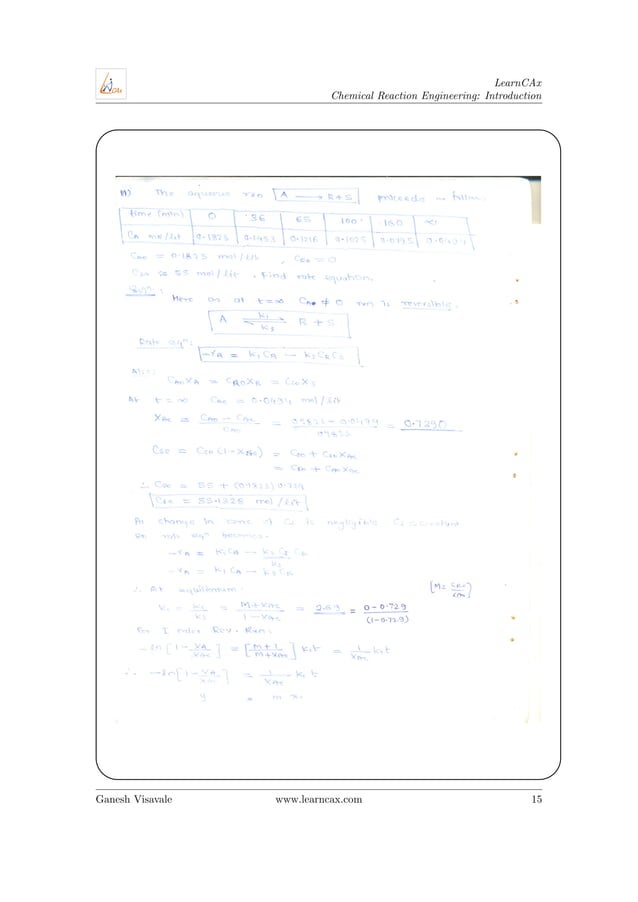 LearnCAx
Chemical Reaction Engineering: Introduction
11) The aqueous rxn A ⟶ R+S proceeds as follows.
time (min) 0 36 65 100 160 ∞
CA mol/lit 0.1823 0.1453 0.1216 0.1025 0.0795 0.0494
CA0 = 0.1823 mol/lit , CR0 = 0
CS0 ≈ 55 mol/lit. Find rate equation.
Solⁿ:
Here as at t=∞ CA ≠ 0 rxn is reversible.
A ⇌ R + S k1 k2
Rate eqⁿ:
-rA = k1CA - k2CRCS
Also:
CA0XA = CR0XR = CS0XS
At t = ∞ CAe = 0.0494 mol/lit
XAe = CA0 - CAe / CA0 = = 0.7290
CSe = CS0 (1-XAe) = CS0 + CS0XAe
= CS0 + CA0XAe
∴ CSe = 55 + (0.1823) 0.729
CSe = 55.1328 mol/lit
As change in conc. of CS is negligible CS = constant
rate eqⁿ becomes.
-rA = k1CA - k2CR CS
-rA = k1CA - k2CR
∴ At equilibrium: [M = CR0/CA0]
k1/k2 = M+XAe / 1-XAe = 2.69 = 0-0.729 / (1-0.729)
For I order Rev. Rxn:
-ln [1 - XA/XAe] = [M+1 / M+XAe] k1t = 1/XAe k1t
∴ -ln [1 - XA/XAe] = 1/XAe k1 t
y = m x.
Ganesh Visavale www.learncax.com 15